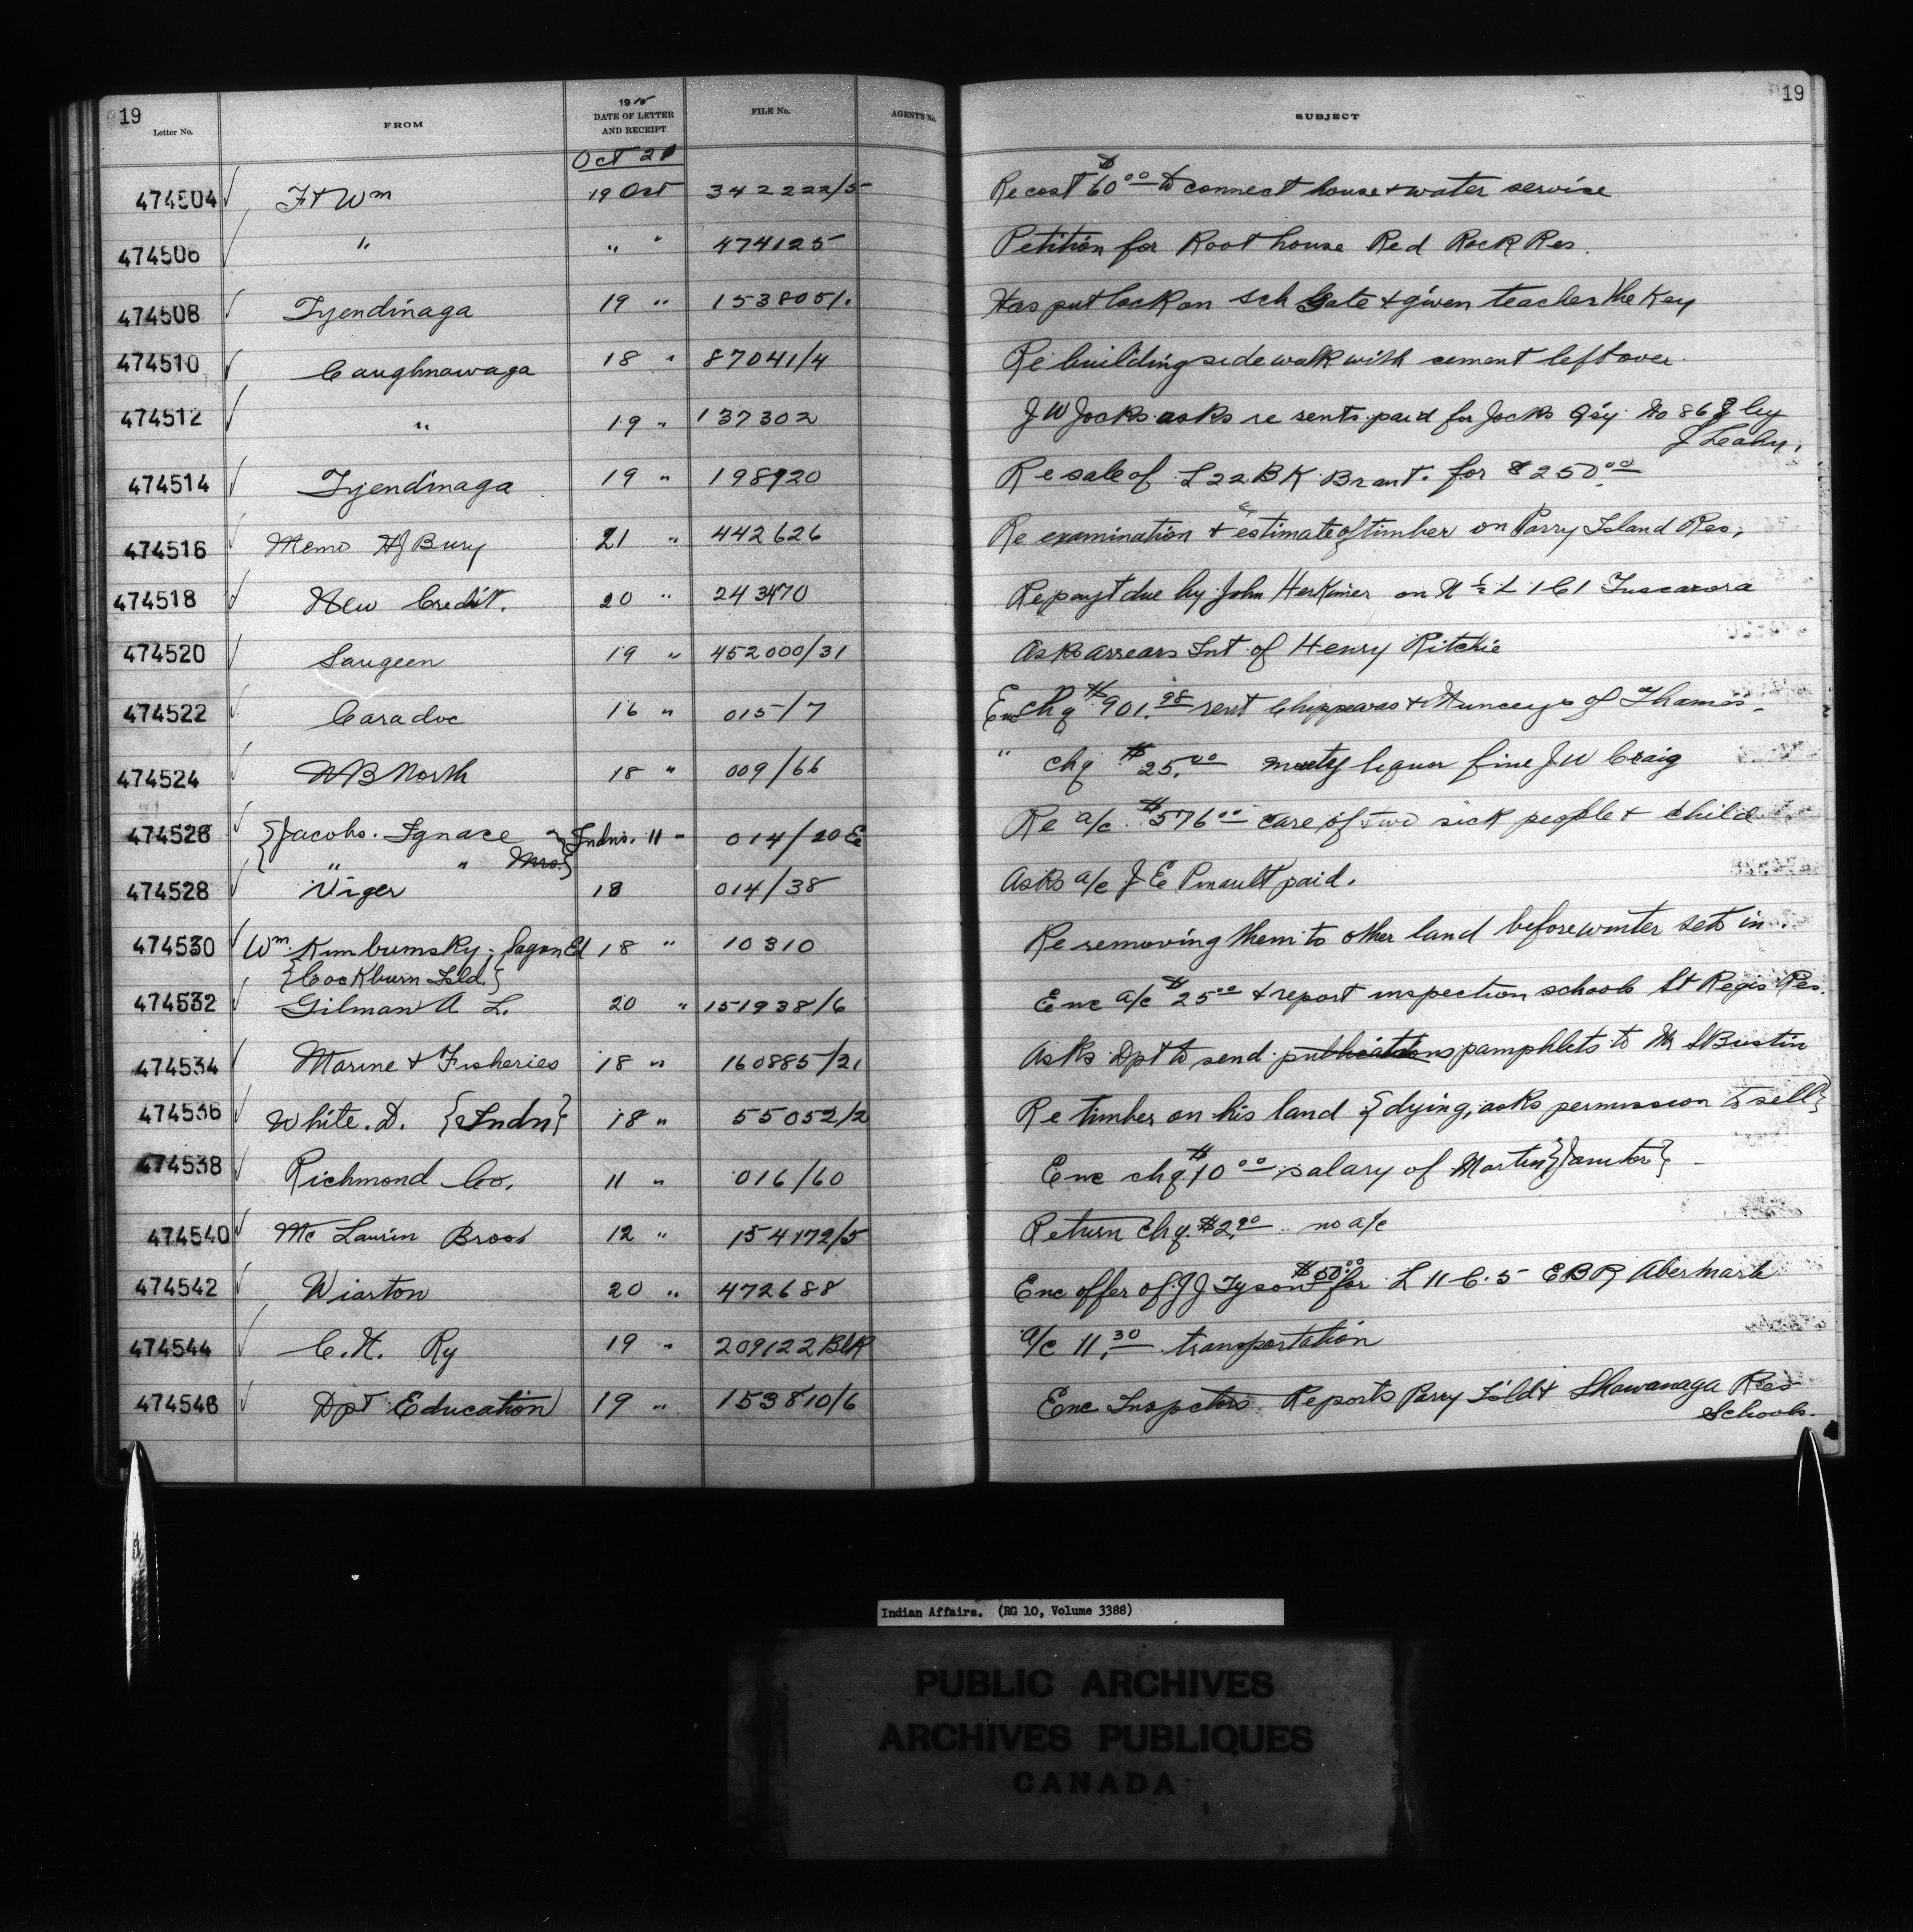 19
Letter No. FROM 1915 DATE OF LETTER AND RECEIPT FILE No. AGENT'S No. SUBJECT 19
Oct 21
474504 Ft Wm 19 Oct 342222/5 Re cost $60.00 to connect house & water service
474506 " " " 474125 Petition for Roothouse Red Rock Res.
474508 Tyendinaga 19 " 153805/1. Has put lock on sch Gate & given teacher the Key
474510 Caughnawaga 18 " 87041/4 Re building sidewalk with cement left over.
474512 " 19 " 137302 J W Jocks asks re rents paid for Jocks Qʼy No 86 by
J Leahy.
474514 Tyendinaga 19 " 198920 Re sale of L 22 B K Brant. for $250.00
474516 Memo HJ Bury 21 " 442626 Re examination & estimate of timber on Parry Island Res.
474518 New Credit. 20 " 243470 Re payt due by John Herkimer on N ½ L 1 C 1 Tuscarora
474520 Saugeen 19 " 452000/31 Asks arrears Int of Henry Ritchie
474522 Caradoc 16 " 015/7 Enc chq $901.98 rent Chippewas & Munceys of Thames
474524 W B North 18 " 009/66 " chq $25.00 liquor fine J W Craig
474526 {Jacobs. Ignace } Indns. 11 " 014/20 E Re a/c $576.00 care of two sick people & child
{ " " Mrs.}
474528 Viger 18 014/38 Asks a/c J E Pinault paid.
474530 Wm. Kimbumsky; 18 " 10310 Re removing them to other land before winter sets in.
{Cockburn Isld.}
474532 Gilman A L. 20 " 151938/6 Enc a/c $25.00 & report inspection schools St Regis Res.
474534 Marine & Fisheries 18 " 160885/21 Asks Dpt to send publications pamphlets to Mr S Bustin
474536 White. D. {Indn} 18 " 55052/2 Re timber on his land {dying, asks permission to sell}
474538 Richmond Co. 11 " 016/60 Enc chq $10.00 salary of Martin {Janitor}
474540 Mc Laurin Bros 12 " 154172/5 Return chq. $2.90 .. no a/c
474542 Wiarton 20 " 472688 Enc offer of J J Tyson $50.00 for L 11 C. 5 E B R Abermarle
474544 C.N. Ry 19 " 209122 Blk a/c 11.30 transportation
474546 Dpt Education 19 " 153810/6 Enc Inspctors Reports Parry Isld & Shawanaga Res
Schools.
Indian Affairs. (RG 10, Volume 3388)
PUBLIC ARCHIVES
ARCHIVES PUBLIQUES
CANADA